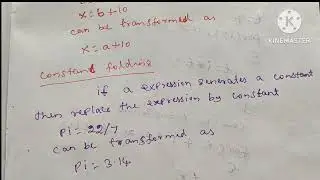 x = b + 10
can be transformed as
x = a + 10
Constant folding
if a expression generates a constant
then replate the expression by constant
Pi = 22/7
can be transformed as
Pi = 3.14
KINEMASTER